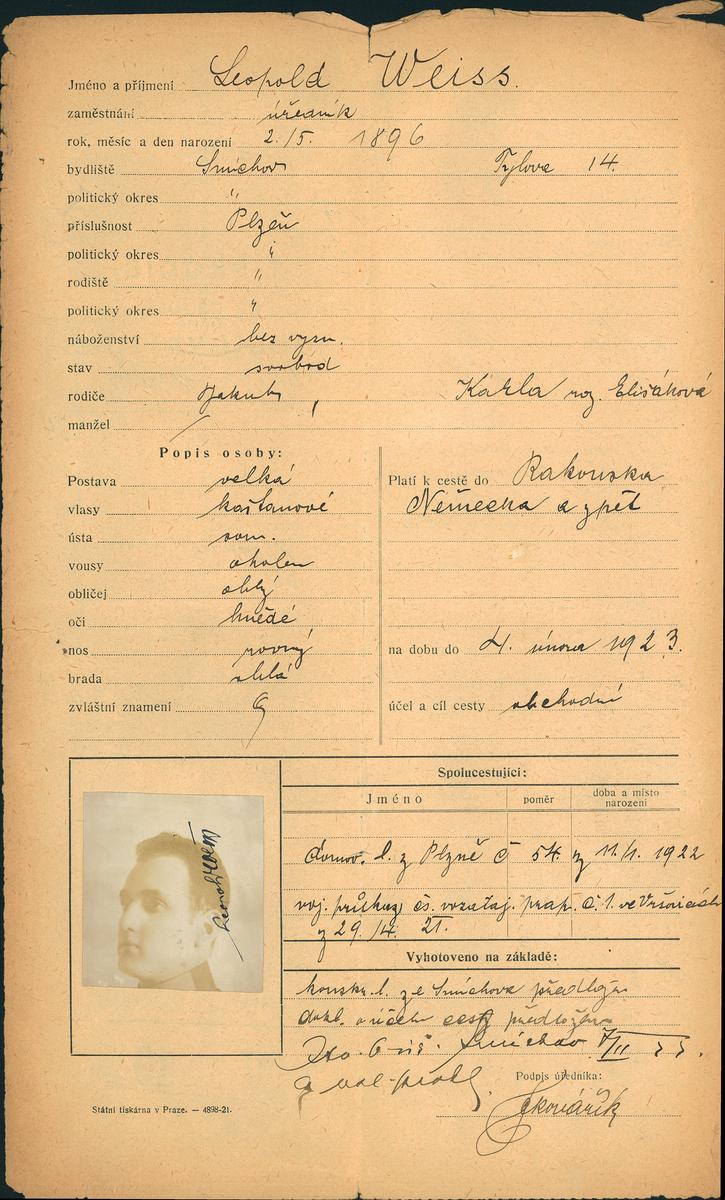 Jméno a příjmení Leopold Weiss.
zaměstnání úředník
rok, měsíc a den narození 2./5. 1896
bydliště Smíchov Tylova 14.
politický okres "
příslušnost Plzeň
politický okres "
rodiště "
politický okres "
náboženství bez vyzn.
stav svobod
rodiče Jakub, Karla roz. Elišáková
manžel
Popis osoby:
Postava velká
vlasy kaštanové
ústa soum.
vousy oholen
obličej oblý
oči hnědé
nos rovný
brada oblá
zvláštní znamení
Platí k cestě do Rakouska
Německa a zpět
na dobu do 4. února 1923.
účel a cíl cesty obchodní
Spolucestující:
Jméno poměr doba a místo narození
domov. l. z Plzně č 54. z 11./1. 1922
voj. průkaz čs. vozataj. prap. č. 1. ve Vršovicích
z 29./4. 21.
Vyhotoveno na základě:
konskr. l. ze Smíchova předložen
dokl. o účelu cesty předložen
Smíchov
Podpis úředníka:
Státní tiskárna v Praze. — 4898-21.